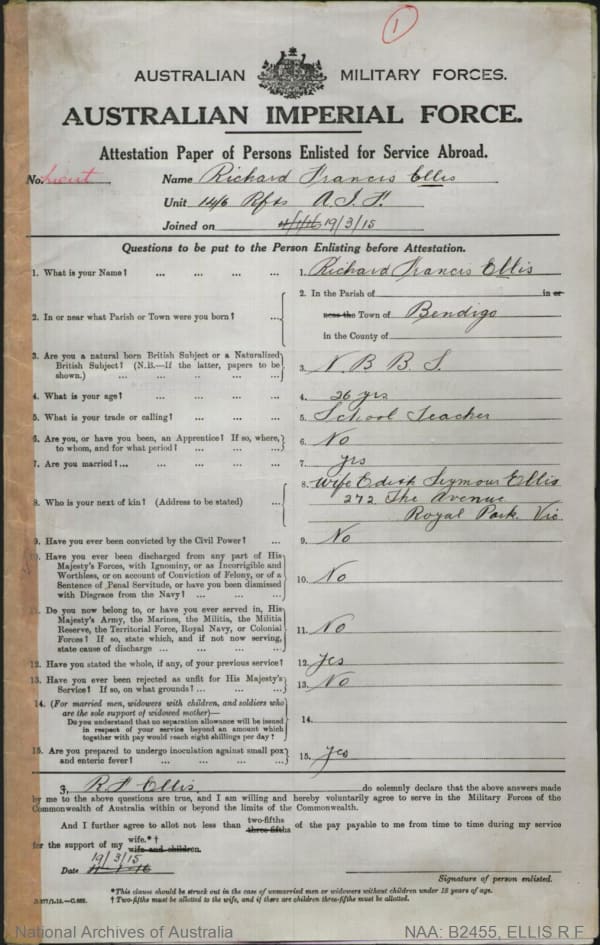 1
AUSTRALIAN MILITARY FORCES.
AUSTRALIAN IMPERIAL FORCE.
Attestation Paper of Persons Enlisted for Service Abroad.
No. Lieut Name Richard Francis Ellis
Unit 14/6 Rfts A.I.F.
Joined on 19/3/15
Questions to be put to the Person Enlisting before Attestation.
1. What is your Name? ... ... ... ... 1. Richard Francis Ellis
2. In or near what Parish or Town were you born? ... 2. In the Parish of in or
near the Town of Bendigo
in the County of
3. Are you a natural born British Subject or a Naturalized
British Subject? (N.B.—If the latter, papers to be
shown.) ... ... ... ... 3. N. B. B. S.
4. What is your age? ... ... ... ... 4. 26 yrs
5. What is your trade or calling? ... ... ... 5. School Teacher
6. Are you, or have you been, an Apprentice? If so, where,
to whom, and for what period? ... ... ... 6. No
7. Are you married? ... ... ... ... ... 7. yes
8. Who is your next of kin? (Address to be stated) ... 8. Wife Edith Seymour Ellis
272 The Avenue
Royal Park Vic
9. Have you ever been convicted by the Civil Power? ... 9. No
10. Have you ever been discharged from any part of His
Majesty's Forces, with Ignominy, or as Incorrigible and
Worthless, or on account of Conviction of Felony, or of a
Sentence of Penal Servitude, or have you been dismissed
with Disgrace from the Navy? ... ... ... 10. No
11. Do you now belong to, or have you ever served in, His
Majesty's Army, the Marines, the Militia, the Militia
Reserve, the Territorial Force, Royal Navy, or Colonial
Forces? If so, state which, and if not now serving,
state cause of discharge ... ... ... ... 11. No
12. Have you stated the whole, if any, of your previous service? 12. yes
13. Have you ever been rejected as unfit for His Majesty's
Service? If so, on what grounds? ... ... ... 13. No
14. (For married men, widowers with children, and soldiers who
are the sole support of widowed mother)—
Do you understand that no separation allowance will be issued
in respect of your service beyond an amount which
together with pay would reach eight shillings per day? 14.
15. Are you prepared to undergo inoculation against small pox
and enteric fever? ... ... ... ... 15. yes
I, R F Ellis do solemnly declare that the above answers made
by me to the above questions are true, and I am willing and hereby voluntarily agree to serve in the Military Forces of the
Commonwealth of Australia within or beyond the limits of the Commonwealth.
And I further agree to allot not less than two-fifths
three-fifths of the pay payable to me from time to time during my service
for the support of my wife.* †
wife and children.
19/3/15
Date
Signature of person enlisted.
*This clause should be struck out in the case of unmarried men or widowers without children under 18 years of age.
† Two-fifths must be allotted to the wife, and if there are children three-fifths must be allotted.
National Archives of Australia
NAA: B2455, ELLIS R F